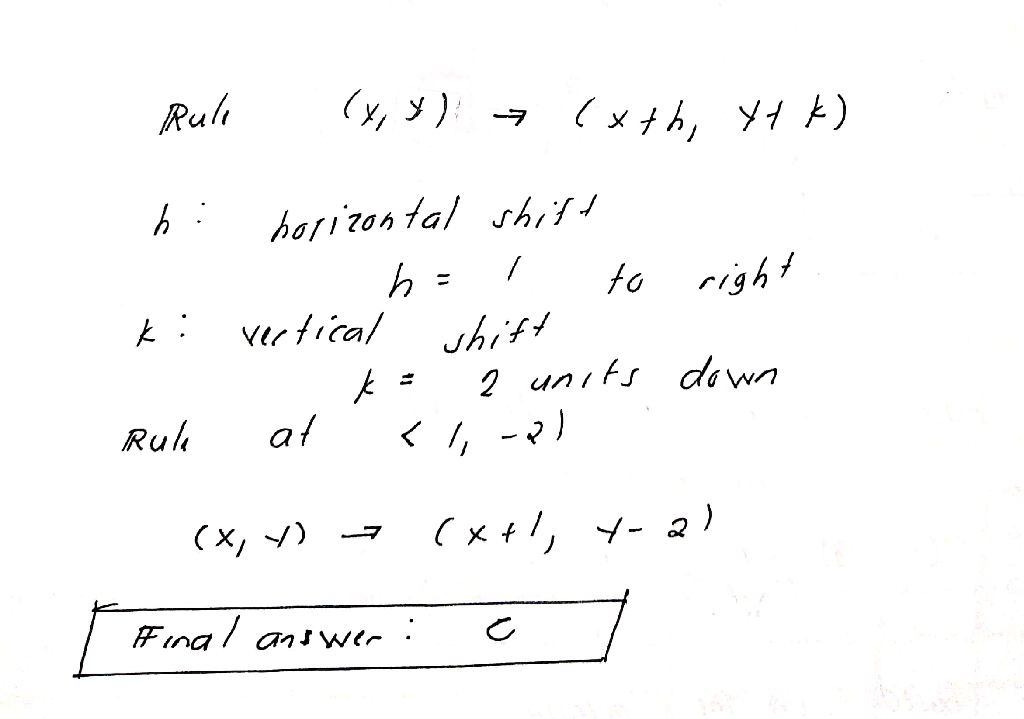 Rule (x, y) → (x + h, y + k)
h : horizontal shift
h = 1 to right
k : vertical shift
k = 2 units down
Rule at < 1, -2)
(x, y) → (x + 1, y - 2)
Final answer : C